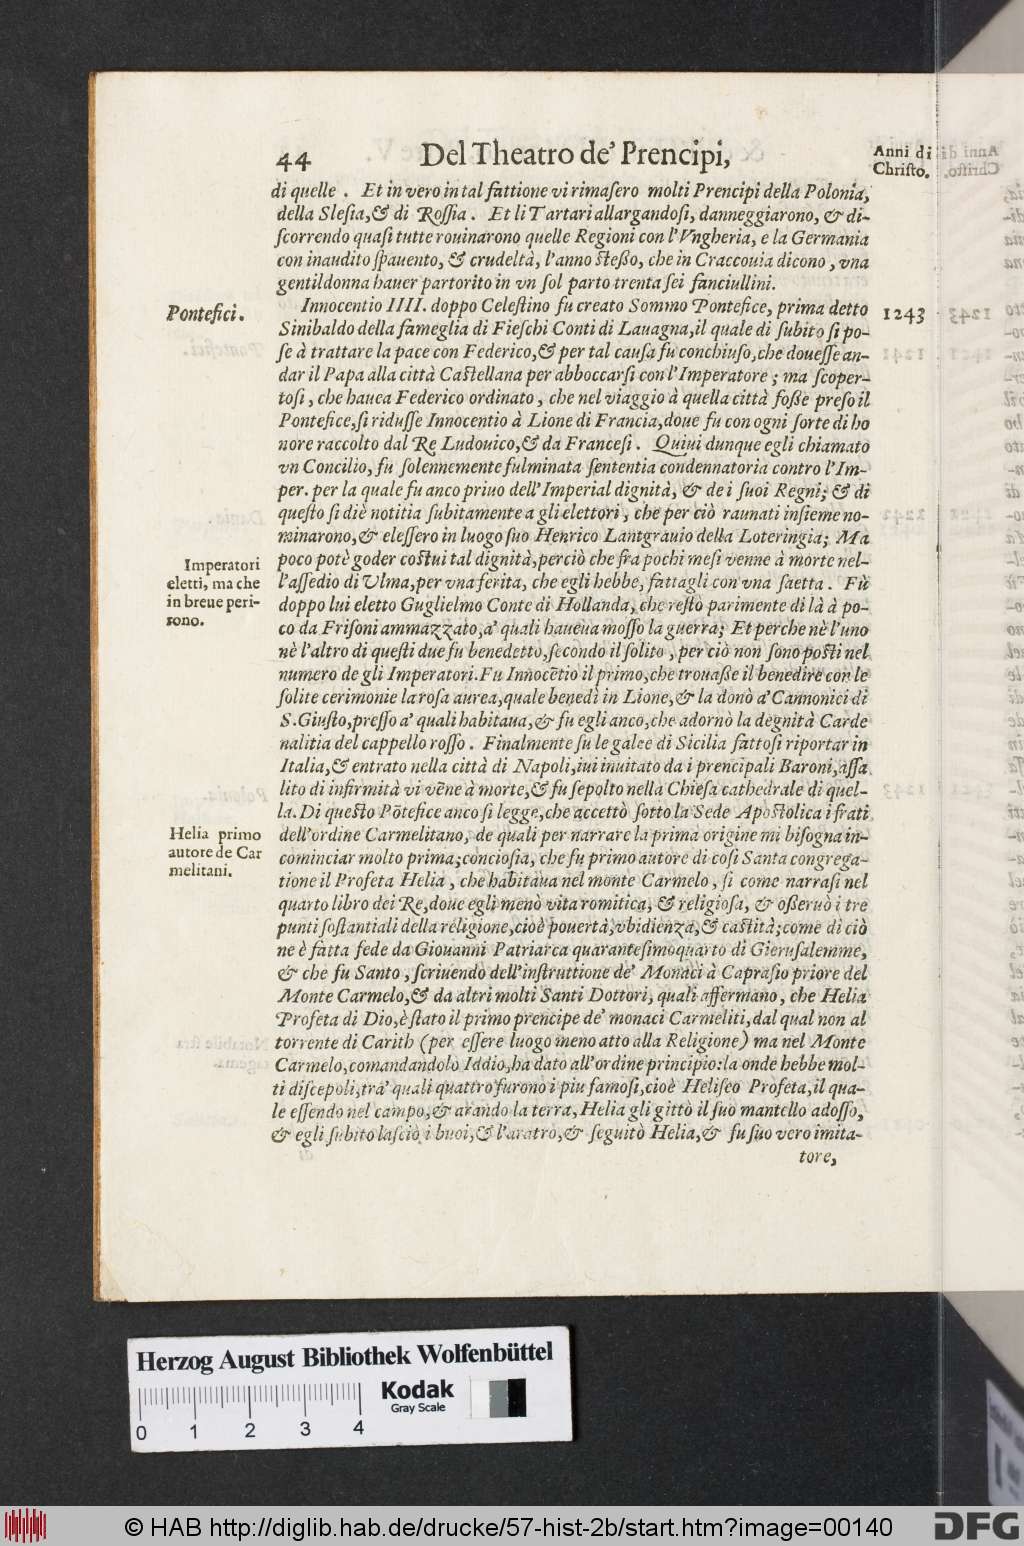 44 Del Theatro de' Prencipi,
Anni di
Christo.
di quelle. Et in vero in tal fattione vi rimasero molti Prencipi della Polonia,
della Slesia,& di Rossia. Et li Tartari allargandosi, danneggiarono, & di-
scorrendo quasi tutte rouinarono quelle Regioni con l'Vngheria, e la Germania
con inaudito spauento, & crudeltà, l'anno stesso, che in Craccouia dicono, vna
gentildonna hauer partorito in vn sol parto trenta sei fanciullini.
Pontefici.
Innocentio IIII. doppo Celestino fu creato Sommo Pontefice, prima detto
1243
Sinibaldo della fameglia di Fieschi Conti di Lauagna,il quale di subito si po-
se à trattare la pace con Federico,& per tal causa fu conchiuso,che douesse an-
dar il Papa alla città Castellana per abboccarsi con l'Imperatore; ma scoper-
tosi, che hauea Federico ordinato, che nel viaggio à quella città fosse preso il
Pontefice,si ridusse Innocentio à Lione di Francia,doue fu con ogni sorte di ho
nore raccolto dal Re Ludouico,& da Francesi. Quiui dunque egli chiamato
vn Concilio, fu solennemente fulminata sententia condennatoria contro l'Im-
per. per la quale fu anco priuo dell'Imperial dignità, & de i suoi Regni; & di
questo si diè notitia subitamente a gli elettori, che per ciò raunati insieme no-
minarono,& elessero in luogo suo Henrico Lantgrauio della Loteringia; Ma
poco potè goder costui tal dignità,perciò che fra pochi mesi venne à morte nel-
Imperatori
eletti, ma che
in breue peri-
rono.
l'assedio di Vlma,per vna ferita, che egli hebbe, fattagli con vna saetta. Fù
doppo lui eletto Guglielmo Conte di Hollanda, che restò parimente di là à po-
co da Frisoni ammazzato,a' quali haueua mosso la guerra; Et perche nè l'uno
nè l'altro di questi due fu benedetto,secondo il solito, per ciò non sono posti nel
numero de gli Imperatori.Fu Innocētio il primo,che trouasse il benedire con le
solite cerimonie la rosa aurea,quale benedì in Lione,& la donò a' Cannonici di
S.Giusto,presso a' quali habitaua,& fu egli anco,che adornò la degnità Carde
nalitia del cappello rosso. Finalmente su le galee di Sicilia fattosi riportar in
Italia,& entrato nella città di Napoli,iui inuitato da i prencipali Baroni,assa
lito di infirmità vi vēne à morte,& fu sepolto nella Chiesa cathedrale di quel-
la. Di questo Pōtefice anco si legge,che accettò sotto la Sede Apostolica i frati
Helia primo
autore de Car
melitani.
dell'ordine Carmelitano, de quali per narrare la prima origine mi bisogna in-
cominciar molto prima;conciosia, che fu primo autore di così Santa congrega-
tione il Profeta Helia, che habitaua nel monte Carmelo, si come narrasi nel
quarto libro dei Re,doue egli menò vita romitica, & religiosa, & osseruò i tre
punti sostantiali della religione,cioè pouertà,vbidienza,& castità;come di ciò
ne è fatta fede da Giouanni Patriarca quarantesimoquarto di Gierusalemme,
& che fu Santo, scriuendo dell'instruttione de' Monaci à Caprasio priore del
Monte Carmelo,& da altri molti Santi Dottori, quali affermano, che Helia
Profeta di Dio,è stato il primo prencipe de' monaci Carmeliti,dal qual non al
torrente di Carith (per essere luogo meno atto alla Religione) ma nel Monte
Carmelo,comandandolo Iddio,ha dato all'ordine principio:la onde hebbe mol-
ti discepoli,tra' quali quattro furono i piu famosi,cioè Heliseo Profeta,il qua-
le essendo nel campo,& arando la terra, Helia gli gittò il suo mantello adosso,
& egli subito lasciò i buoi,& l'aratro,& seguitò Helia,& fu suo vero imita-
tore,
Herzog August Bibliothek Wolfenbüttel
Kodak
Gray Scale
0 1 2 3 4
© HAB http://diglib.hab.de/drucke/57-hist-2b/start.htm?image=00140
DFG